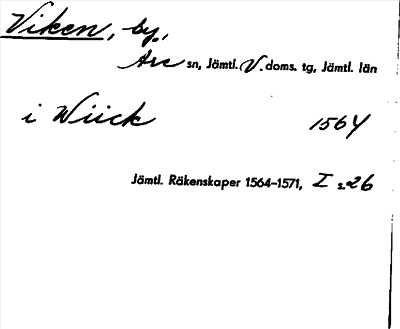 Viken, by,
Are sn, Jämtl. V. doms. tg, Jämtl. län
i Wiick 1564
Jämtl. Räkenskaper 1564–1571, I s. 26